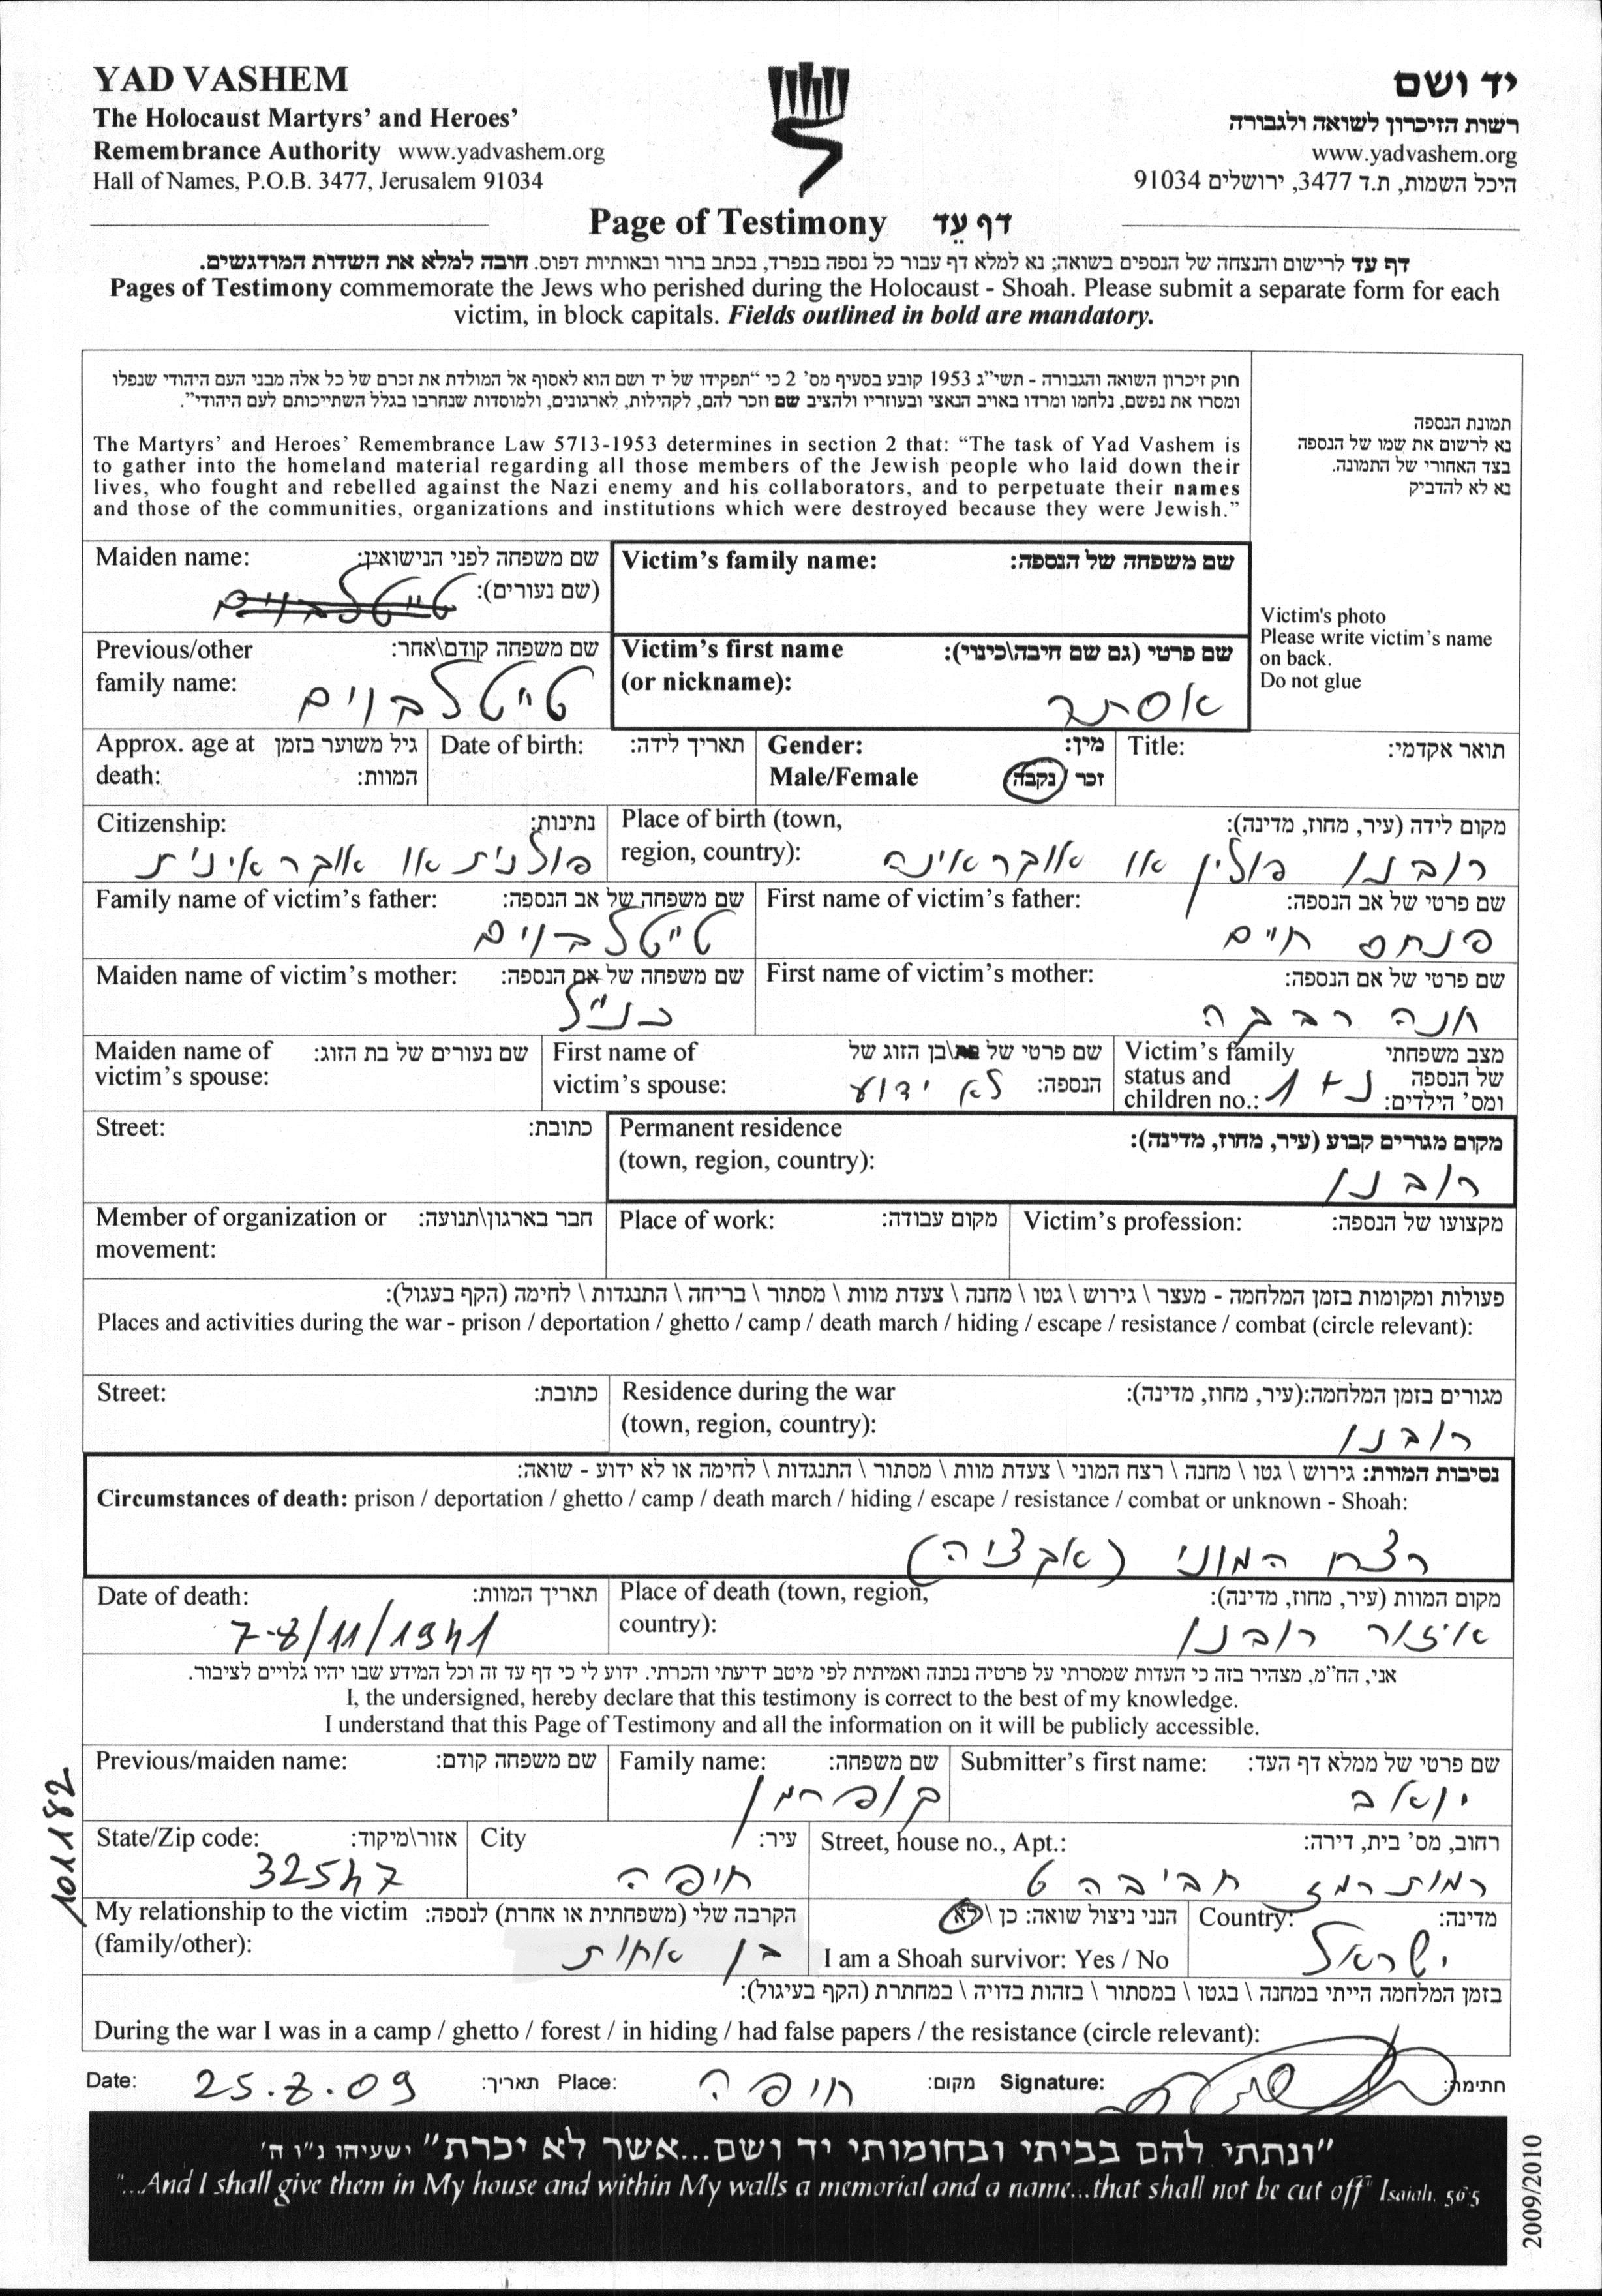 YAD VASHEM
The Holocaust Martyrs' and Heroes'
Remembrance Authority www.yadvashem.org
Hall of Names, P.O.B. 3477, Jerusalem 91034
יד ושם
רשות הזיכרון לשואה ולגבורה
www.yadvashem.org
היכל השמות, ת.ד 3477, ירושלים 91034
Page of Testimony דף עֵד
דף עד לרישום והנצחה של הנספים בשואה; נא למלא דף עבור כל נספה בנפרד, בכתב ברור ובאותיות דפוס. חובה למלא את השדות המודגשים.
Pages of Testimony commemorate the Jews who perished during the Holocaust - Shoah. Please submit a separate form for each
victim, in block capitals. Fields outlined in bold are mandatory.
חוק זיכרון השואה והגבורה - תשי"ג 1953 קובע בסעיף מס' 2 כי "תפקידו של יד ושם הוא לאסוף אל המולדת את זכרם של כל אלה מבני העם היהודי שנפלו
ומסרו את נפשם, נלחמו ומרדו באויב הנאצי ובעוזריו ולהציב שם וזכר להם, לקהילות, לארגונים, ולמוסדות שנחרבו בגלל השתייכותם לעם היהודי".
The Martyrs' and Heroes' Remembrance Law 5713-1953 determines in section 2 that: "The task of Yad Vashem is
to gather into the homeland material regarding all those members of the Jewish people who laid down their
lives, who fought and rebelled against the Nazi enemy and his collaborators, and to perpetuate their names
and those of the communities, organizations and institutions which were destroyed because they were Jewish."
תמונת הנספה
נא לרשום את שמו של הנספה
בצד האחורי של התמונה.
נא לא להדביק
Victim's photo
Please write victim's name
on back.
Do not glue
Maiden name: שם משפחה לפני הנישואין:
(שם נעורים):
טייטלבוים
Victim's family name: שם משפחה של הנספה:
Previous/other שם משפחה קודם\אחר:
family name: טייטלבוים
Victim's first name שם פרטי (גם שם חיבה\כינוי):
(or nickname): אסתר
Approx. age at גיל משוער בזמן
death: המוות:
Date of birth: תאריך לידה:
Gender: מין:
Male/Female זכר / נקבה
Title: תואר אקדמי:
Citizenship: נתינות:
פולנית או אוקראינית
Place of birth (town, מקום לידה (עיר, מחוז, מדינה):
region, country): רובנו פולין או אוקראינה
Family name of victim's father: שם משפחה של אב הנספה:
טייטלבוים
First name of victim's father: שם פרטי של אב הנספה:
פנחס חיים
Maiden name of victim's mother: שם משפחה של אם הנספה:
כנ"ל
First name of victim's mother: שם פרטי של אם הנספה:
חנה רבקה
Maiden name of שם נעורים של בת הזוג:
victim's spouse:
First name of שם פרטי של בת\בן הזוג של
victim's spouse: הנספה: לא ידוע
Victim's family מצב משפחתי
status and של הנספה
children no.: ומס' הילדים: נ + 1
Street: כתובת:
Permanent residence מקום מגורים קבוע (עיר, מחוז, מדינה):
(town, region, country):
רובנו
Member of organization or חבר בארגון\תנועה:
movement:
Place of work: מקום עבודה:
Victim's profession: מקצועו של הנספה:
פעולות ומקומות בזמן המלחמה - מעצר \ גירוש \ גטו \ מחנה \ צעדת מוות \ מסתור \ בריחה \ התנגדות \ לחימה (הקף בעגול):
Places and activities during the war - prison / deportation / ghetto / camp / death march / hiding / escape / resistance / combat (circle relevant):
Street: כתובת:
Residence during the war מגורים בזמן המלחמה:(עיר, מחוז, מדינה):
(town, region, country):
רובנו
נסיבות המוות: גירוש \ גטו \ מחנה \ רצח המוני \ צעדת מוות \ מסתור \ התנגדות \ לחימה או לא ידוע - שואה:
Circumstances of death: prison / deportation / ghetto / camp / death march / hiding / escape / resistance / combat or unknown - Shoah:
רצח המוני (אקציה)
Date of death: תאריך המוות:
7-8/11/1941
Place of death (town, region, מקום המוות (עיר, מחוז, מדינה):
country): איזור רובנו
אני, הח"מ, מצהיר בזה כי העדות שמסרתי על פרטיה נכונה ואמיתית לפי מיטב ידיעתי והכרתי. ידוע לי כי דף עד זה וכל המידע שבו יהיו גלויים לציבור.
I, the undersigned, hereby declare that this testimony is correct to the best of my knowledge.
I understand that this Page of Testimony and all the information on it will be publicly accessible.
Previous/maiden name: שם משפחה קודם:
Family name: שם משפחה:
קופרמן
Submitter's first name: שם פרטי של ממלא דף העד:
יואב
State/Zip code: אזור\מיקוד:
32547
City עיר:
חיפה
Street, house no., Apt.: רחוב, מס' בית, דירה:
רמות רמז חביבה ט
My relationship to the victim הקרבה שלי (משפחתית או אחרת) לנספה:
(family/other): בן אחות
הנני ניצול שואה: כן \ לא
I am a Shoah survivor: Yes / No
Country: מדינה:
ישראל
בזמן המלחמה הייתי במחנה \ בגטו \ במסתור \ בזהות בדויה \ במחתרת (הקף בעיגול):
During the war I was in a camp / ghetto / forest / in hiding / had false papers / the resistance (circle relevant):
Date: 25.8.09 תאריך: Place: חיפה מקום: Signature: חתימה:
"ונתתי להם בביתי ובחומותי יד ושם...אשר לא יכרת" ישעיהו נ"ו ה'
"...And I shall give them in My house and within My walls a memorial and a name...that shall not be cut off" Isaiah, 56:5
101182
2009/2010